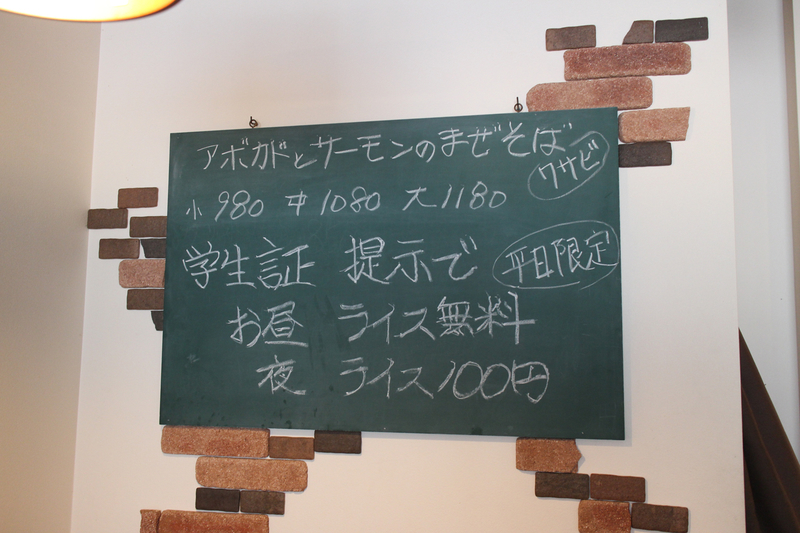 アボカドとサーモンのまぜそば ワサビ
小 980 中 1080 大 1180
学生証 提示で 平日限定
お昼 ライス無料
夜 ライス100円